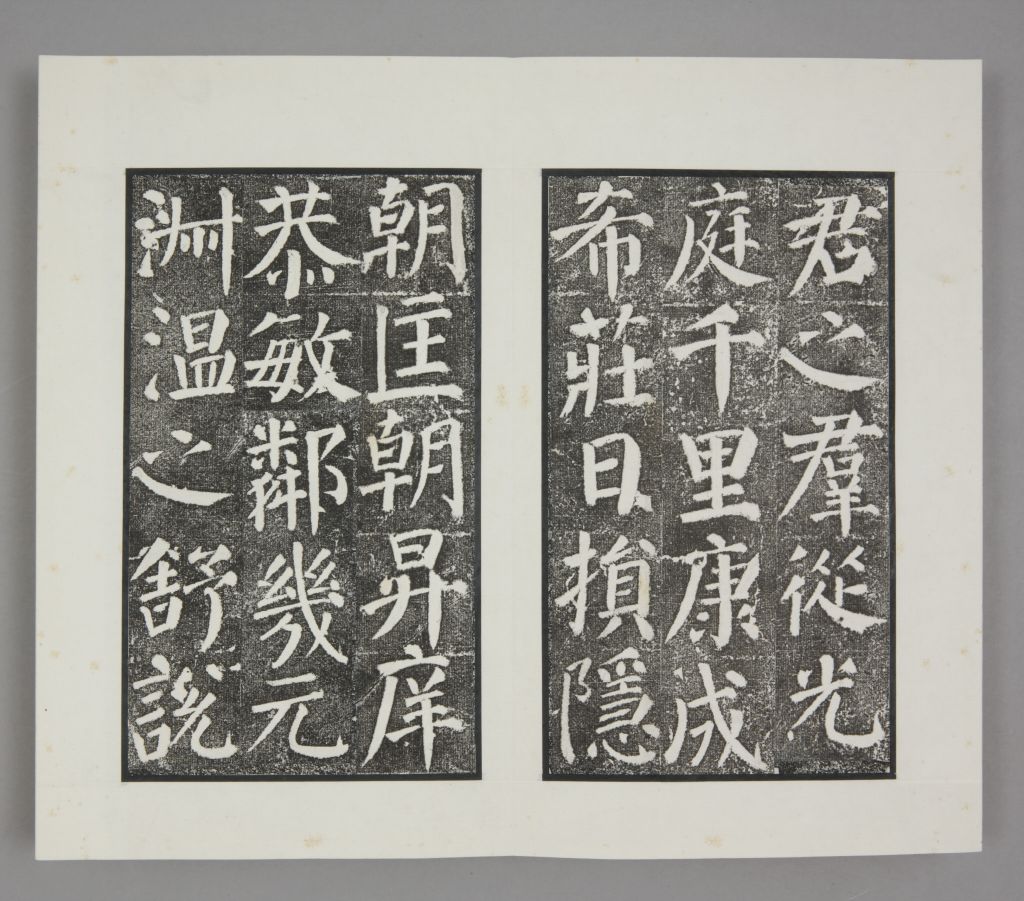 君之羣從光
庭千里康成
希莊日損隱
朝匡朝昇庠
恭敏鄰幾元
淵温之舒說